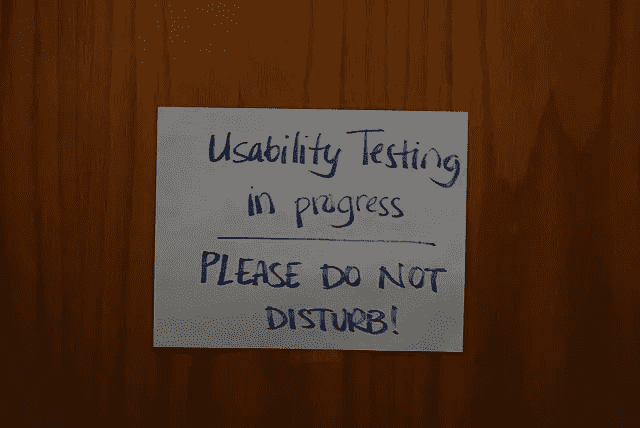 Usability Testing
in progress
PLEASE DO NOT
DISTURB!